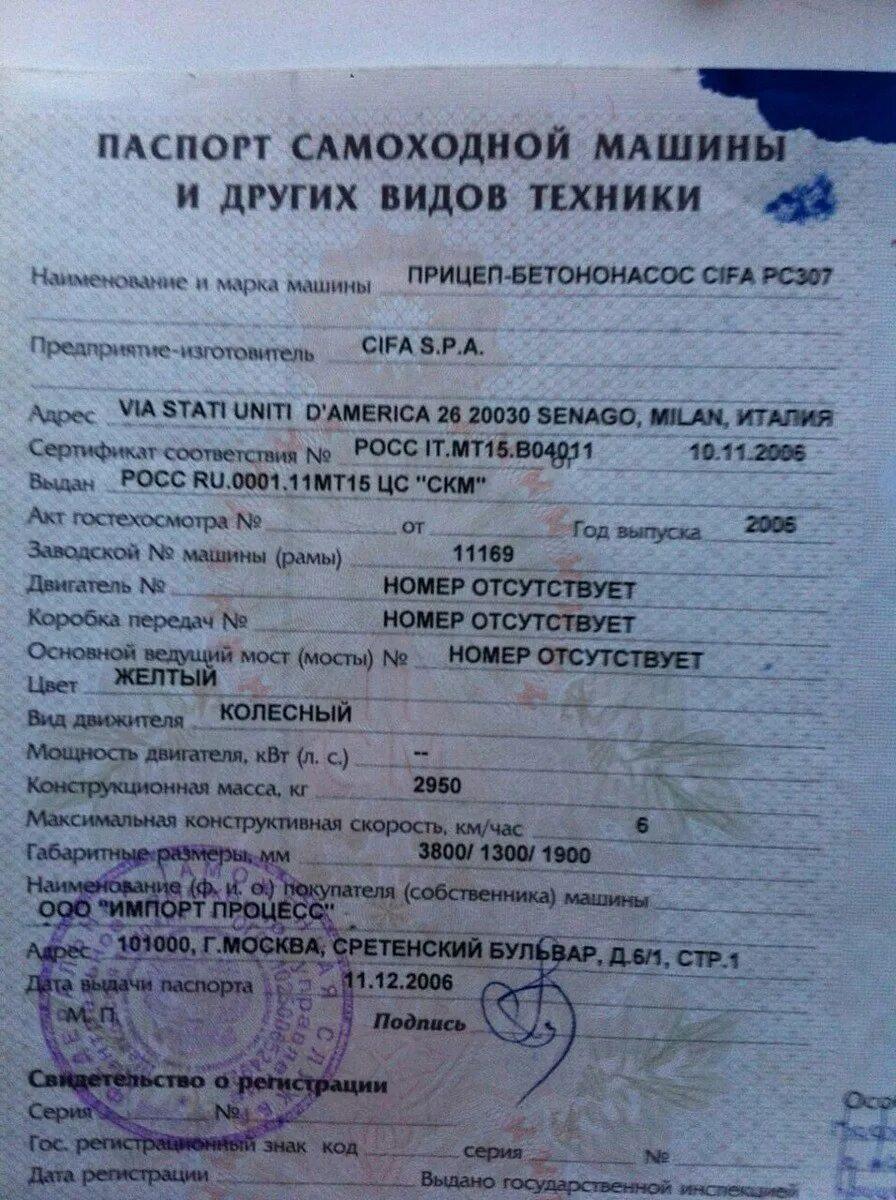 ПАСПОРТ САМОХОДНОЙ МАШИНЫ
И ДРУГИХ ВИДОВ ТЕХНИКИ
Наименование и марка машины ПРИЦЕП-БЕТОНОНАСОС CIFA PC307
Предприятие-изготовитель CIFA S.P.A.
Адрес VIA STATI UNITI D'AMERICA 26 20030 SENAGO, MILAN, ИТАЛИЯ
Сертификат соответствия № РОСС IT.МТ15.В04011 от 10.11.2006
Выдан РОСС RU.0001.11МТ15 ЦС "СКМ"
Акт гостехосмотра № от Год выпуска 2006
Заводской № машины (рамы) 11169
Двигатель № НОМЕР ОТСУТСТВУЕТ
Коробка передач № НОМЕР ОТСУТСТВУЕТ
Основной ведущий мост (мосты) № НОМЕР ОТСУТСТВУЕТ
Цвет ЖЕЛТЫЙ
Вид движителя КОЛЕСНЫЙ
Мощность двигателя, кВт (л. с.) --
Конструкционная масса, кг 2950
Максимальная конструктивная скорость, км/час 6
Габаритные размеры, мм 3800/ 1300/ 1900
Наименование (ф. и. о.) покупателя (собственника) машины
ООО "ИМПОРТ ПРОЦЕСС"
Адрес 101000, Г.МОСКВА, СРЕТЕНСКИЙ БУЛЬВАР, Д.6/1, СТР.1
Дата выдачи паспорта 11.12.2006
М. П. Подпись
Свидетельство о регистрации
Серия №
Гос. регистрационный знак код серия №
Дата регистрации Выдано государственной инспекцией